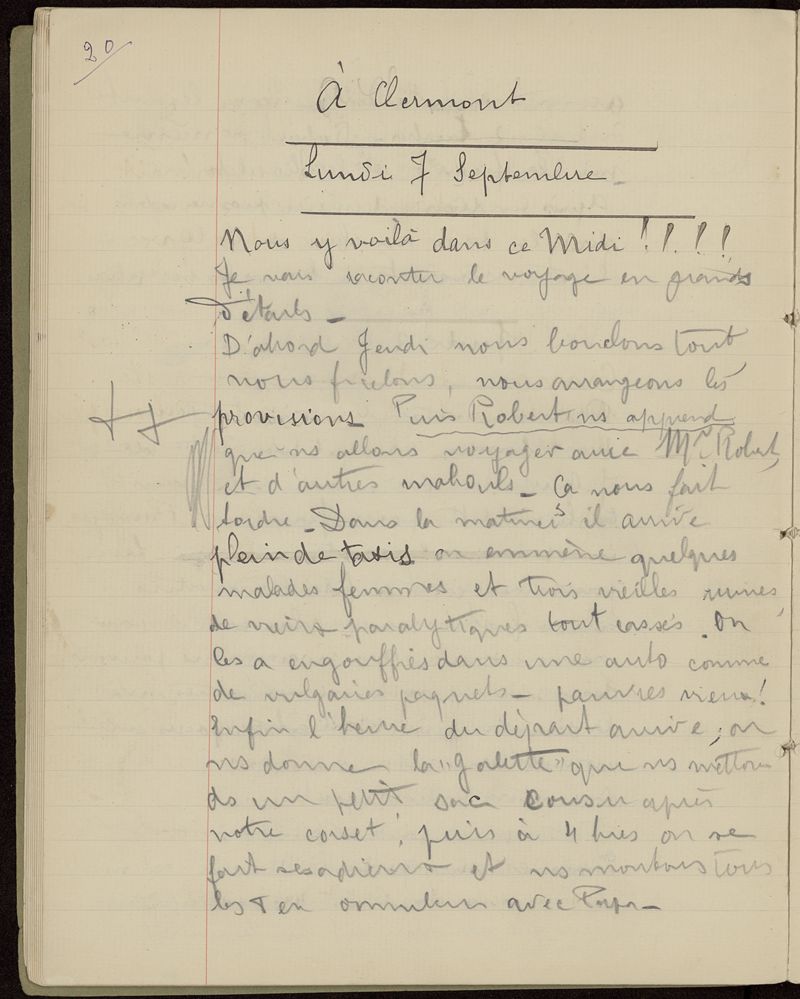 20
À Clermont
Lundi 7 Septembre
Nous y voilà dans ce Midi !!!!
Je vais raconter le voyage en grands
détails –
D'abord Jeudi nous bouclons tout,
nous ficelons, nous arrangeons les
provisions Puis Robert ns apprend
que ns allons voyager avec Mr Robert,
et d'autres mabouls – Ça nous fait
tordre – Dans la matinée il arrive
plein de taxis on emmène quelques
malades femmes et trois vieilles ruines,
de vieux paralytiques tout cassés. On
les a engouffrés dans une auto comme
de vulgaires paquets – pauvres vieux!
Enfin l'heure du départ arrive; on
ns donne la "galette" que ns mettons
ds un petit sac cousu après
notre corset, puis à 4 hres on se
fait ses adieux et ns montons tous
les en omnibus avec Papa –